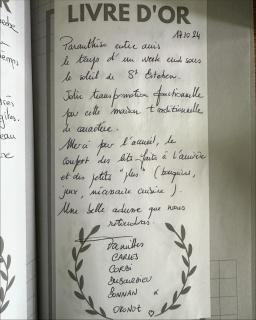 LIVRE D'OR
17.10.24
Parenthèse entre amis
le temps d'un week end sous
le soleil de St Esteben.
Jolie transformation fonctionnelle
par cette maison traditionnelle
de caractère.
Merci par l'accueil, le
confort des lits-faits à l'arrivée
et des petits "plus" (bouquins,
jeux, nécessaire cuisine).
Une belle adresse que nous
retiendrons
Familles
CARLES
CORBI